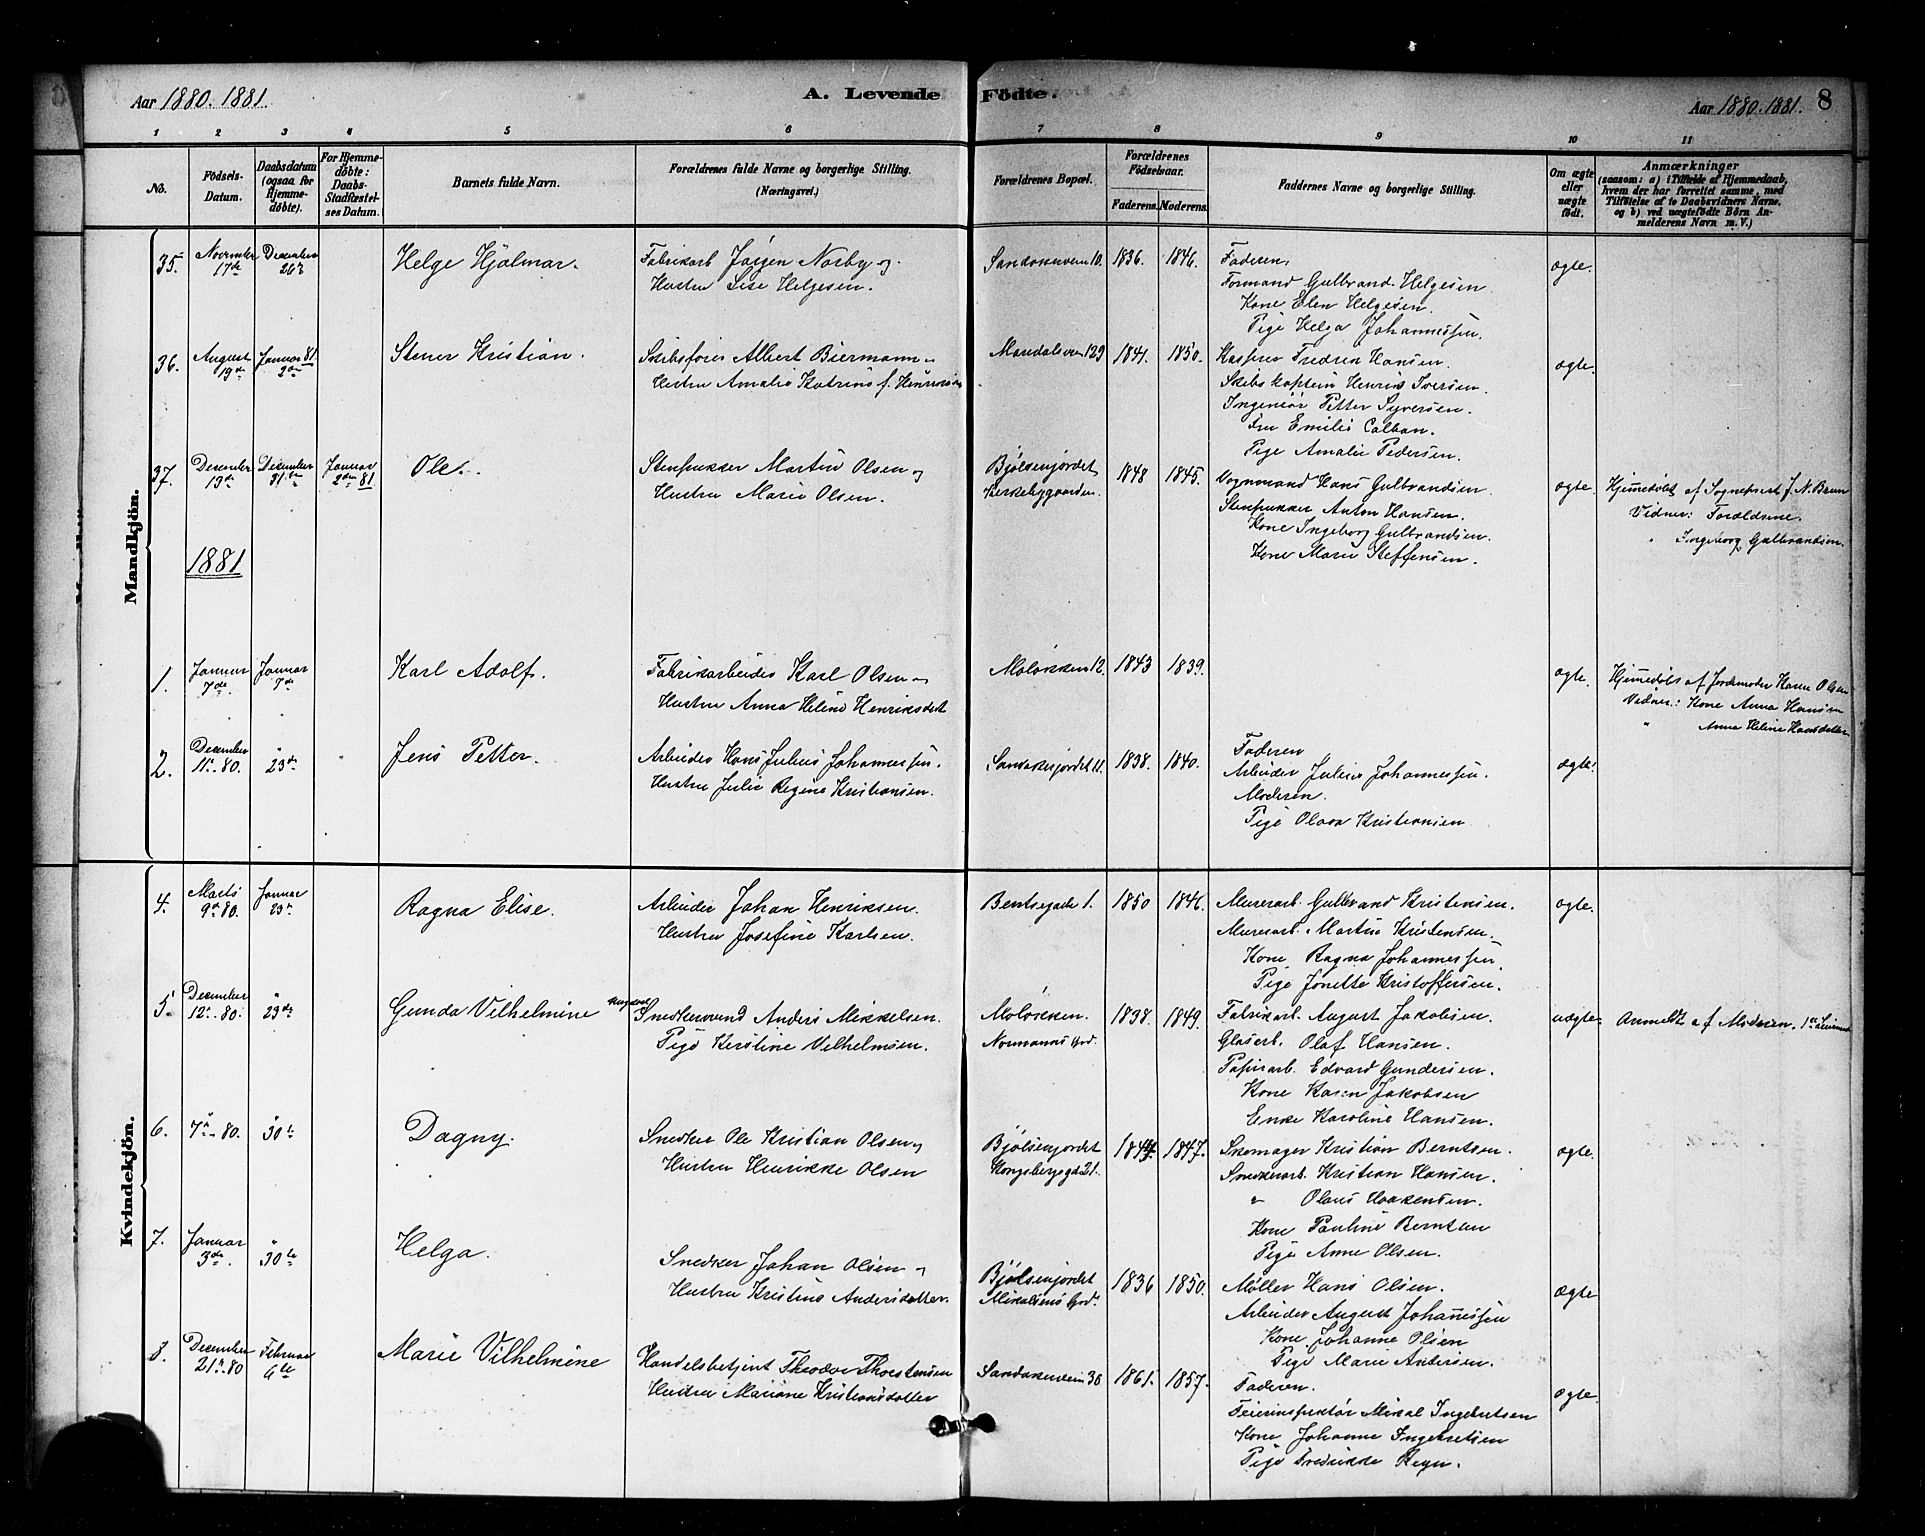 Aar 1880. 1881.
A. Levende Födte.
Aar 1880. 1881. 8
1 2 3 4 5 6 7 8 9 10 11
No.
Födsels-Datum.
Daabsdatum (ogsaa for Hjemme-döbte).
For Hjemme-döbte: Daabs-Stadfæstel-ses Datum.
Barnets fulde Navn.
Forældrenes fulde Navne og borgerlige Stilling. (Næringsvei.)
Forældrenes Bopæl.
Forældrenes Födselsaar.
Faderens. Moderens.
Faddernes Navne og borgerlige Stilling.
Om ægte eller uægte födt.
Anmærkninger
(saasom: a) i Tilfælde af Hjemmedaab,
hvem der har forrettet samme, med
Tilföielse af to Daabsvidners Navne.
og b) ved uægtefödte Börn An-
melderens Navn m. V.)
Mandkjön.
35. November 17de December 26de Helge Hjalmar. Fabrikarb Jörgen Norby og Hustru Lise Helgesen. Sandakerveien 10. 1836. 1846. Faderen. ægte.
Formand Gulbrand Helgesen.
Kone Elen Helgesen.
Pige Helga Johannessen.
36. August 19de Januar 81 2den Stener Kristian. Skibsfører Albert Biermann Hustru Amalie Katrine f. Maridalsveien 129 1841. 1850. Fredrik Hansen. ægte.
Skibskaptein Henrik Iversen.
Ingeniør Petter Syversen.
Fru Emilie
Pige Amalie Pedersen.
37. December 13de December 31te Januar 2den 81 Ole. Stenhukker Martin Olsen og Hustru Marie Olsen. Bjølsenjordet 1848 1845. Vognmand Hans Gulbrandsen. ægte. Hjemmedøbt af Sogneprest J. N. Brun
Stenhukker Anton Hansen. Vidner: Forældrene.
Kone Ingeborg Gulbrandsen. Ingeborg Gulbrandsen.
Kone Marie Steffensen.
1881
1. Januar 7de. Januar 7de Karl Adolf. Fabrikarbeider Karl Olsen Hustru Anna Heline Henriksdat 12 1843 1839. ægte. Hjemmedøbt af Jordemoder Karen Olsen
Vidner: Kone Anna Hansen
" Anne Heline Hansdatter
2. December 11te 80. " 23de Jens Petter. Arbeider Hans Julius Johannessen. Hustru Julie Regine Kristiansen. Sandakerjordet 11. 1838. 1840. Faderen ægte.
Arbeider Julius Johannessen.
Moderen.
Pige Olava Kristiansen
Kvindekjön.
4. Marts 9de 80. Januar 23de Ragna Elise. Arbeider Johan Henriksen. Hustru Josefine Karlsen. Bentsegade 1. 1850 1846. Murerarb. Gulbrand Kristensen. ægte.
Murerarb. Martin Kristensen.
Kone Ragna Johannessen.
Pige Jonette Kristoffersen.
5. December 12te 80. " 23de Gunda Vilhelmine Ungkarl Snedkersvend Anders Mikkelsen. Pige Kerstine Vilhelmsen. Normanns Grd. 1838. 1849. Fabrikarb. August Jakobsen. uægte. Anmeldt af Moderen.
Glaserb. Olaf Hansen.
Papirarb. Edvard Gundersen.
Kone Karen Jakobsen
Enke Karoline Hansen.
6. 7de 80. " 30te Dagny. Snedker Ole Kristian Olsen Hustru Henrikke Olsen Bjølsenjordet Kongsberggd 21. 1847. Skomager Kristian Berntsen. ægte.
Snedkerarb. Kristian Hansen.
" Olaus Haakensen.
Kone Pauline Berntsen
Pige Anne Olsen.
7. Januar 3de. " 30te Helga. Snedker Johan Olsen Hustru Kristine Andersdatter. Bjølsenjordet 1836 1850. Møller Hans Olsen. Ægte
Arbeider August Johannessen
Kone Johanne Olsen
Pige Marie Andersen.
8. December 21de 80 Februar 6te Marie Vilhelmine Handelsbetjent Theodor Thorstensen Hustru Mariane Kristiansdatter Sandakerveien 36 1861. 1857. Faderen. ægte.
Feierinspektør Mikal Ingebretsen
Kone Johanne Ingebretsen
Pige Fredrikke